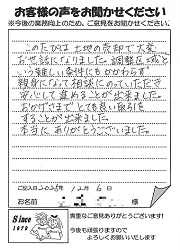 お客様の声をお聞かせください
※今後の業務向上のため、ご意見をお聞かせください。
このたびは土地の売却で大変
お世話になりました。調整区域と
いう難しい条件にもかかわらず
親身になって相談にのっていただき
安心して進めることが出来ました。
おかげさまでとても良い取引を
することが出来ました。
本当にありがとうございました。
ご記入日2025年12月6日
お名前 様
Since
1979
貴重なご意見ありがとうございます!
今後も頑張りますので
よろしくお願いいたします